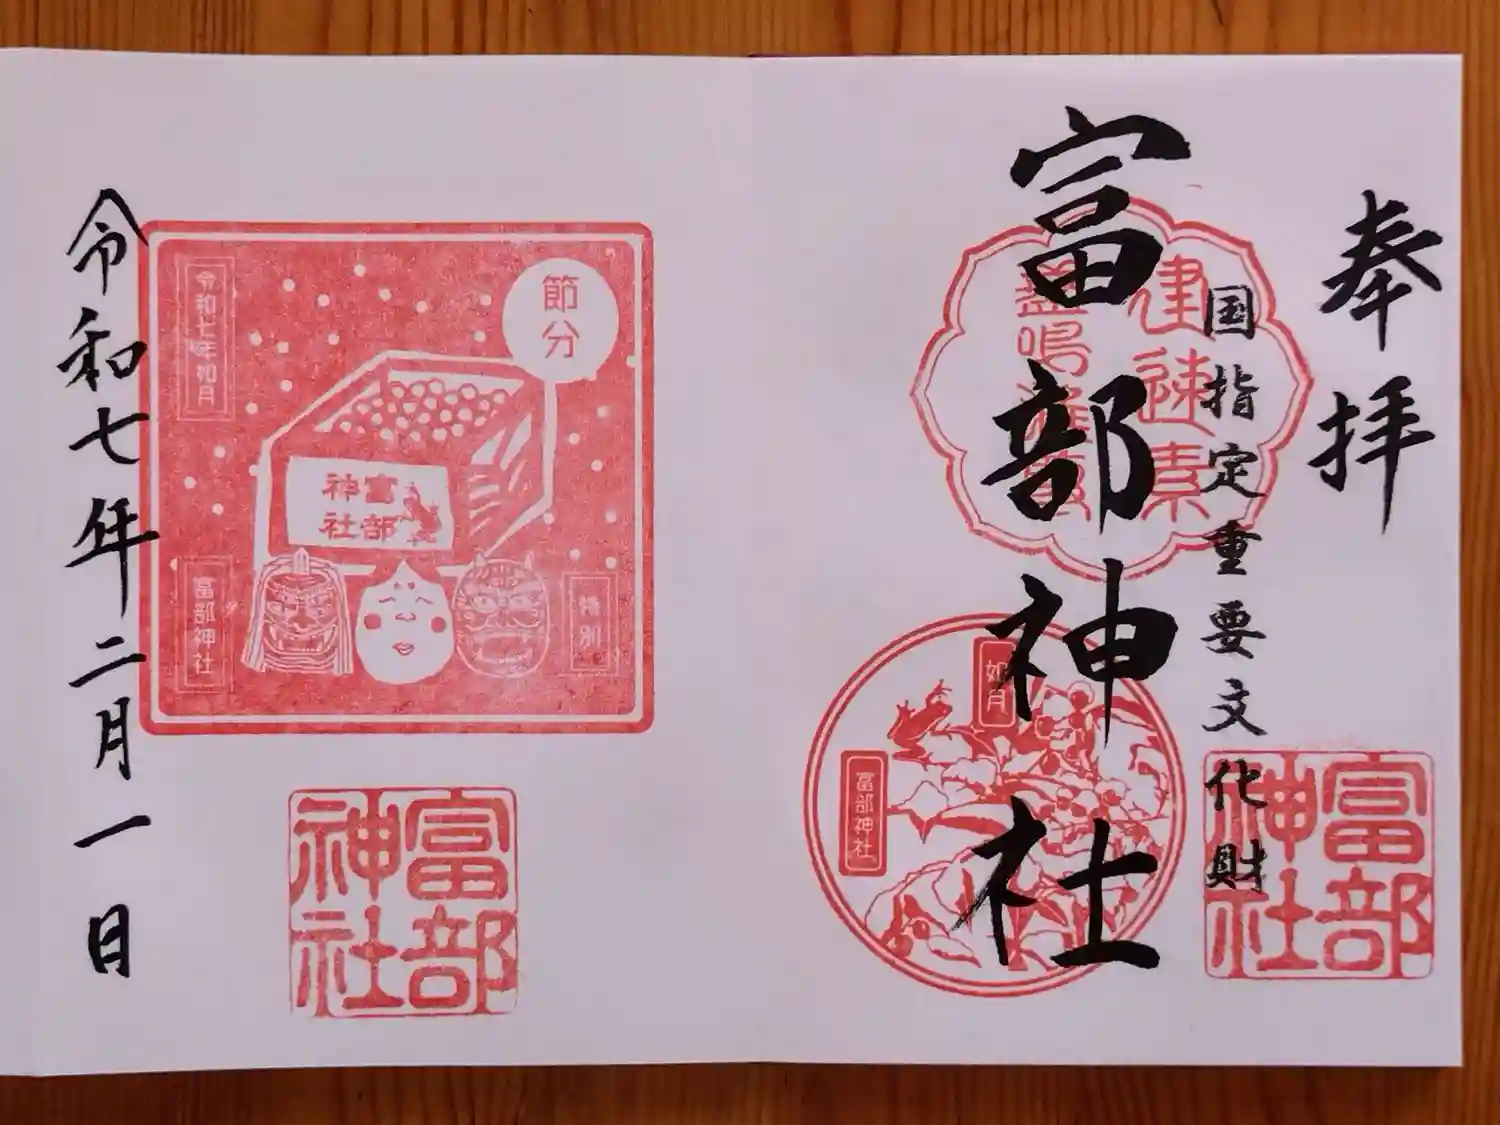 奉拝
国指定重要文化財
富部神社
建速素
盞嗚
如月
富部神社
富部
神社
節分
令和七年如月
富部
神社
富部神社
特別
富部
神社
令和七年二月一日